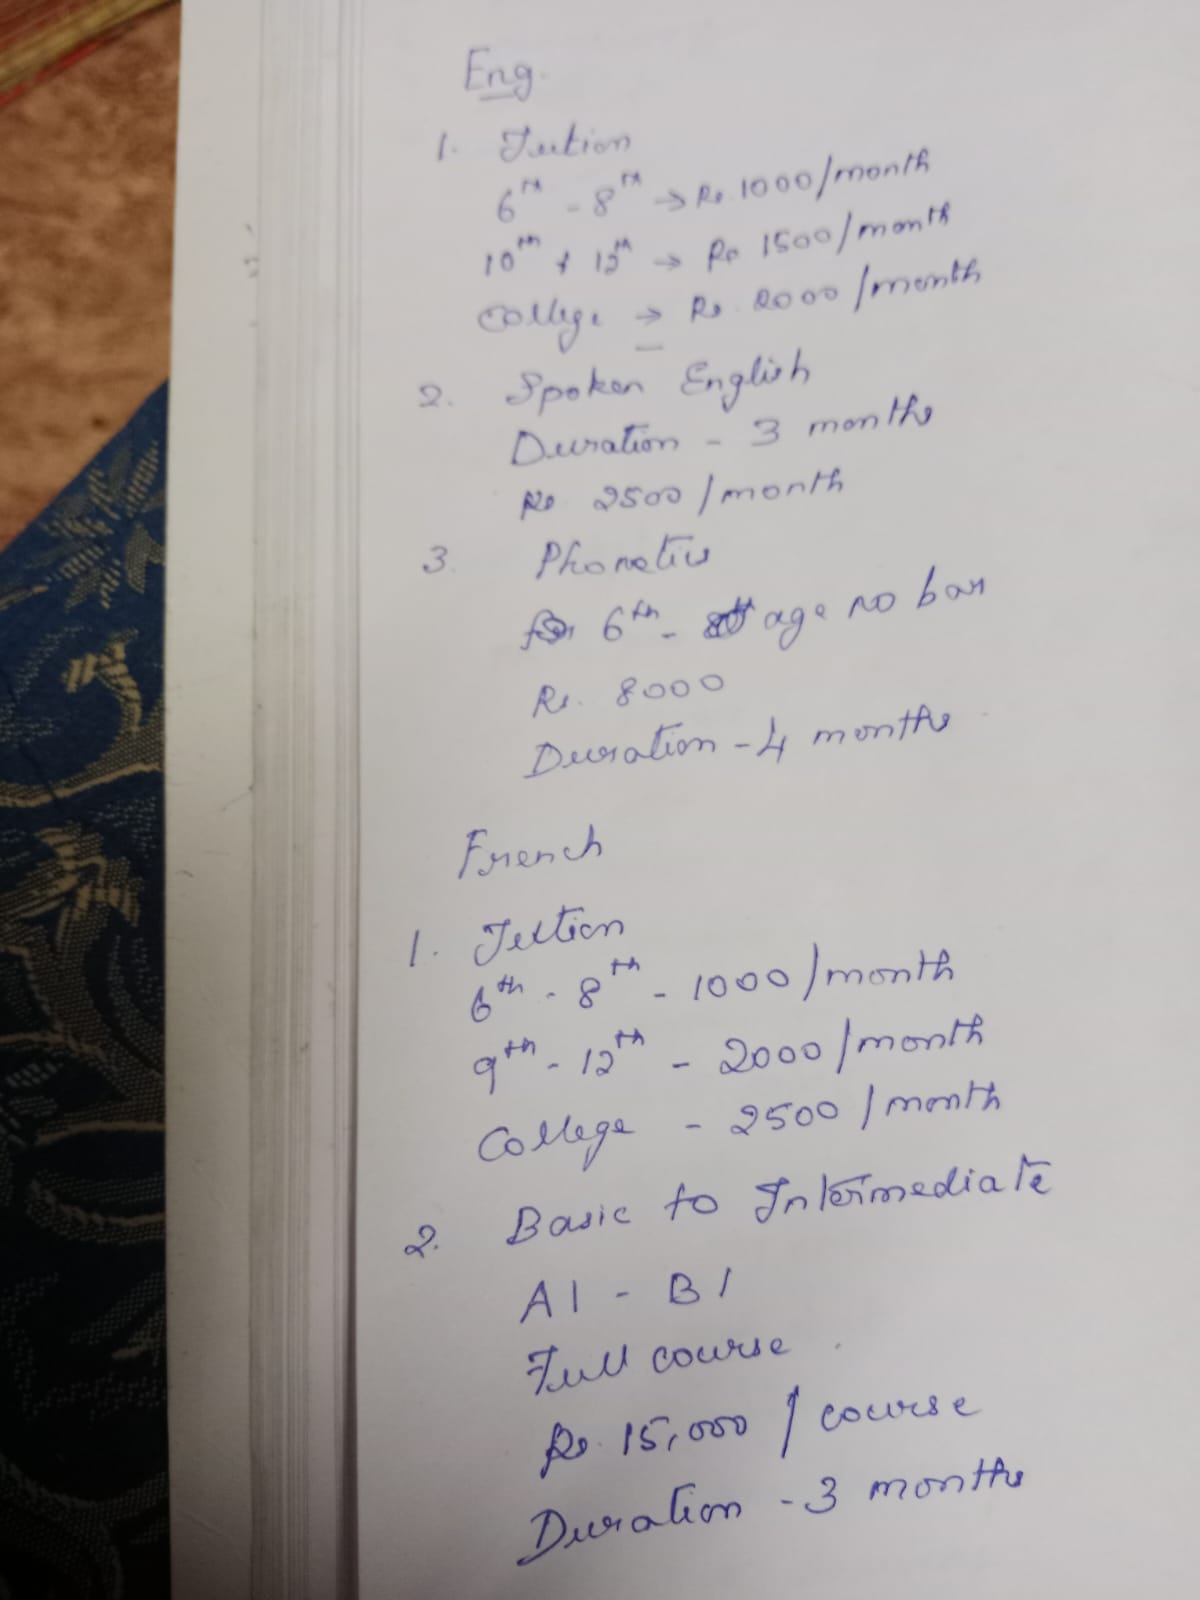 Eng.
1. Tution
6th - 8th → Rs. 1000/month
10th + 12th → Rs 1500/month
College → Rs. 2000/month
2. Spoken English
Duration - 3 months
Rs 2500/month
3. Phonetics
for 6th - age no bar
Rs. 8000
Duration - 4 months
French
1. Tution
6th - 8th - 1000/month
9th - 12th - 2000/month
College - 2500/month
2. Basic to Intermediate
A1 - B1
Full course
Rs. 15,000/course
Duration - 3 months